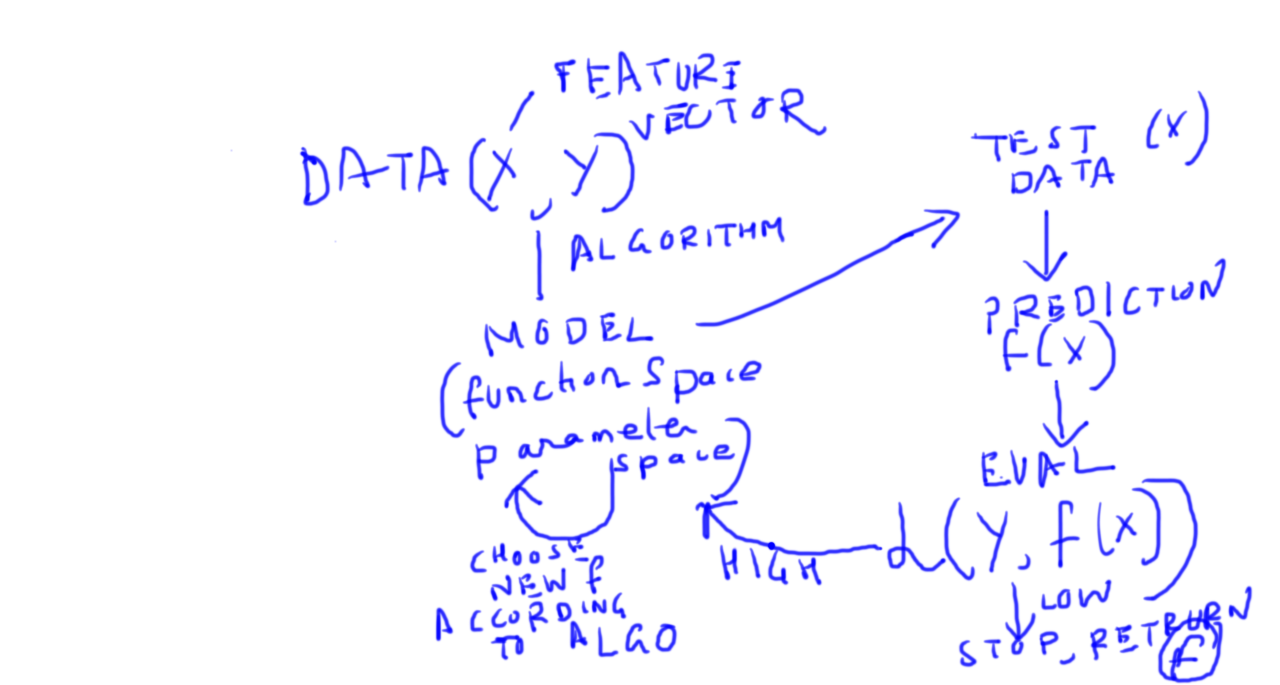 FEATURE
VECTOR
DATA (X, Y)
ALGORITHM
MODEL
(function space
parameter
space)
CHOOSE
NEW f
ACCORDING
TO ALGO
TEST (X)
DATA
PREDICTION
f(X)
EVAL
L(Y, f(X))
HIGH
LOW
STOP, RETURN
f